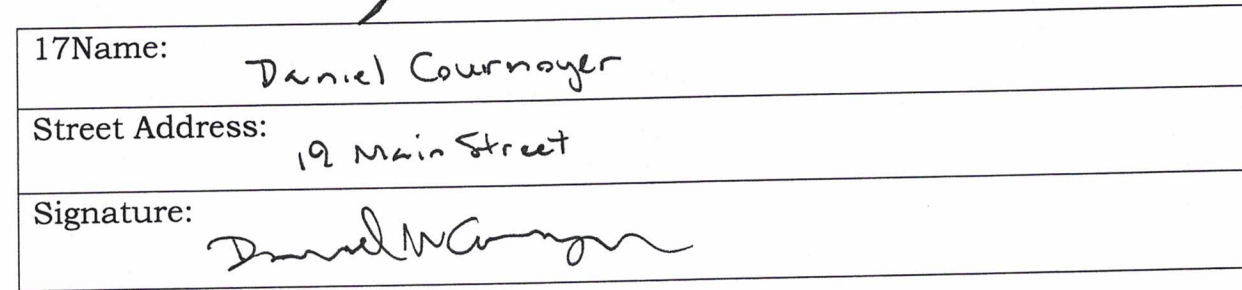 17Name: Daniel Cournoyer
Street Address: 19 Main Street
Signature: Daniel W Cournoyer